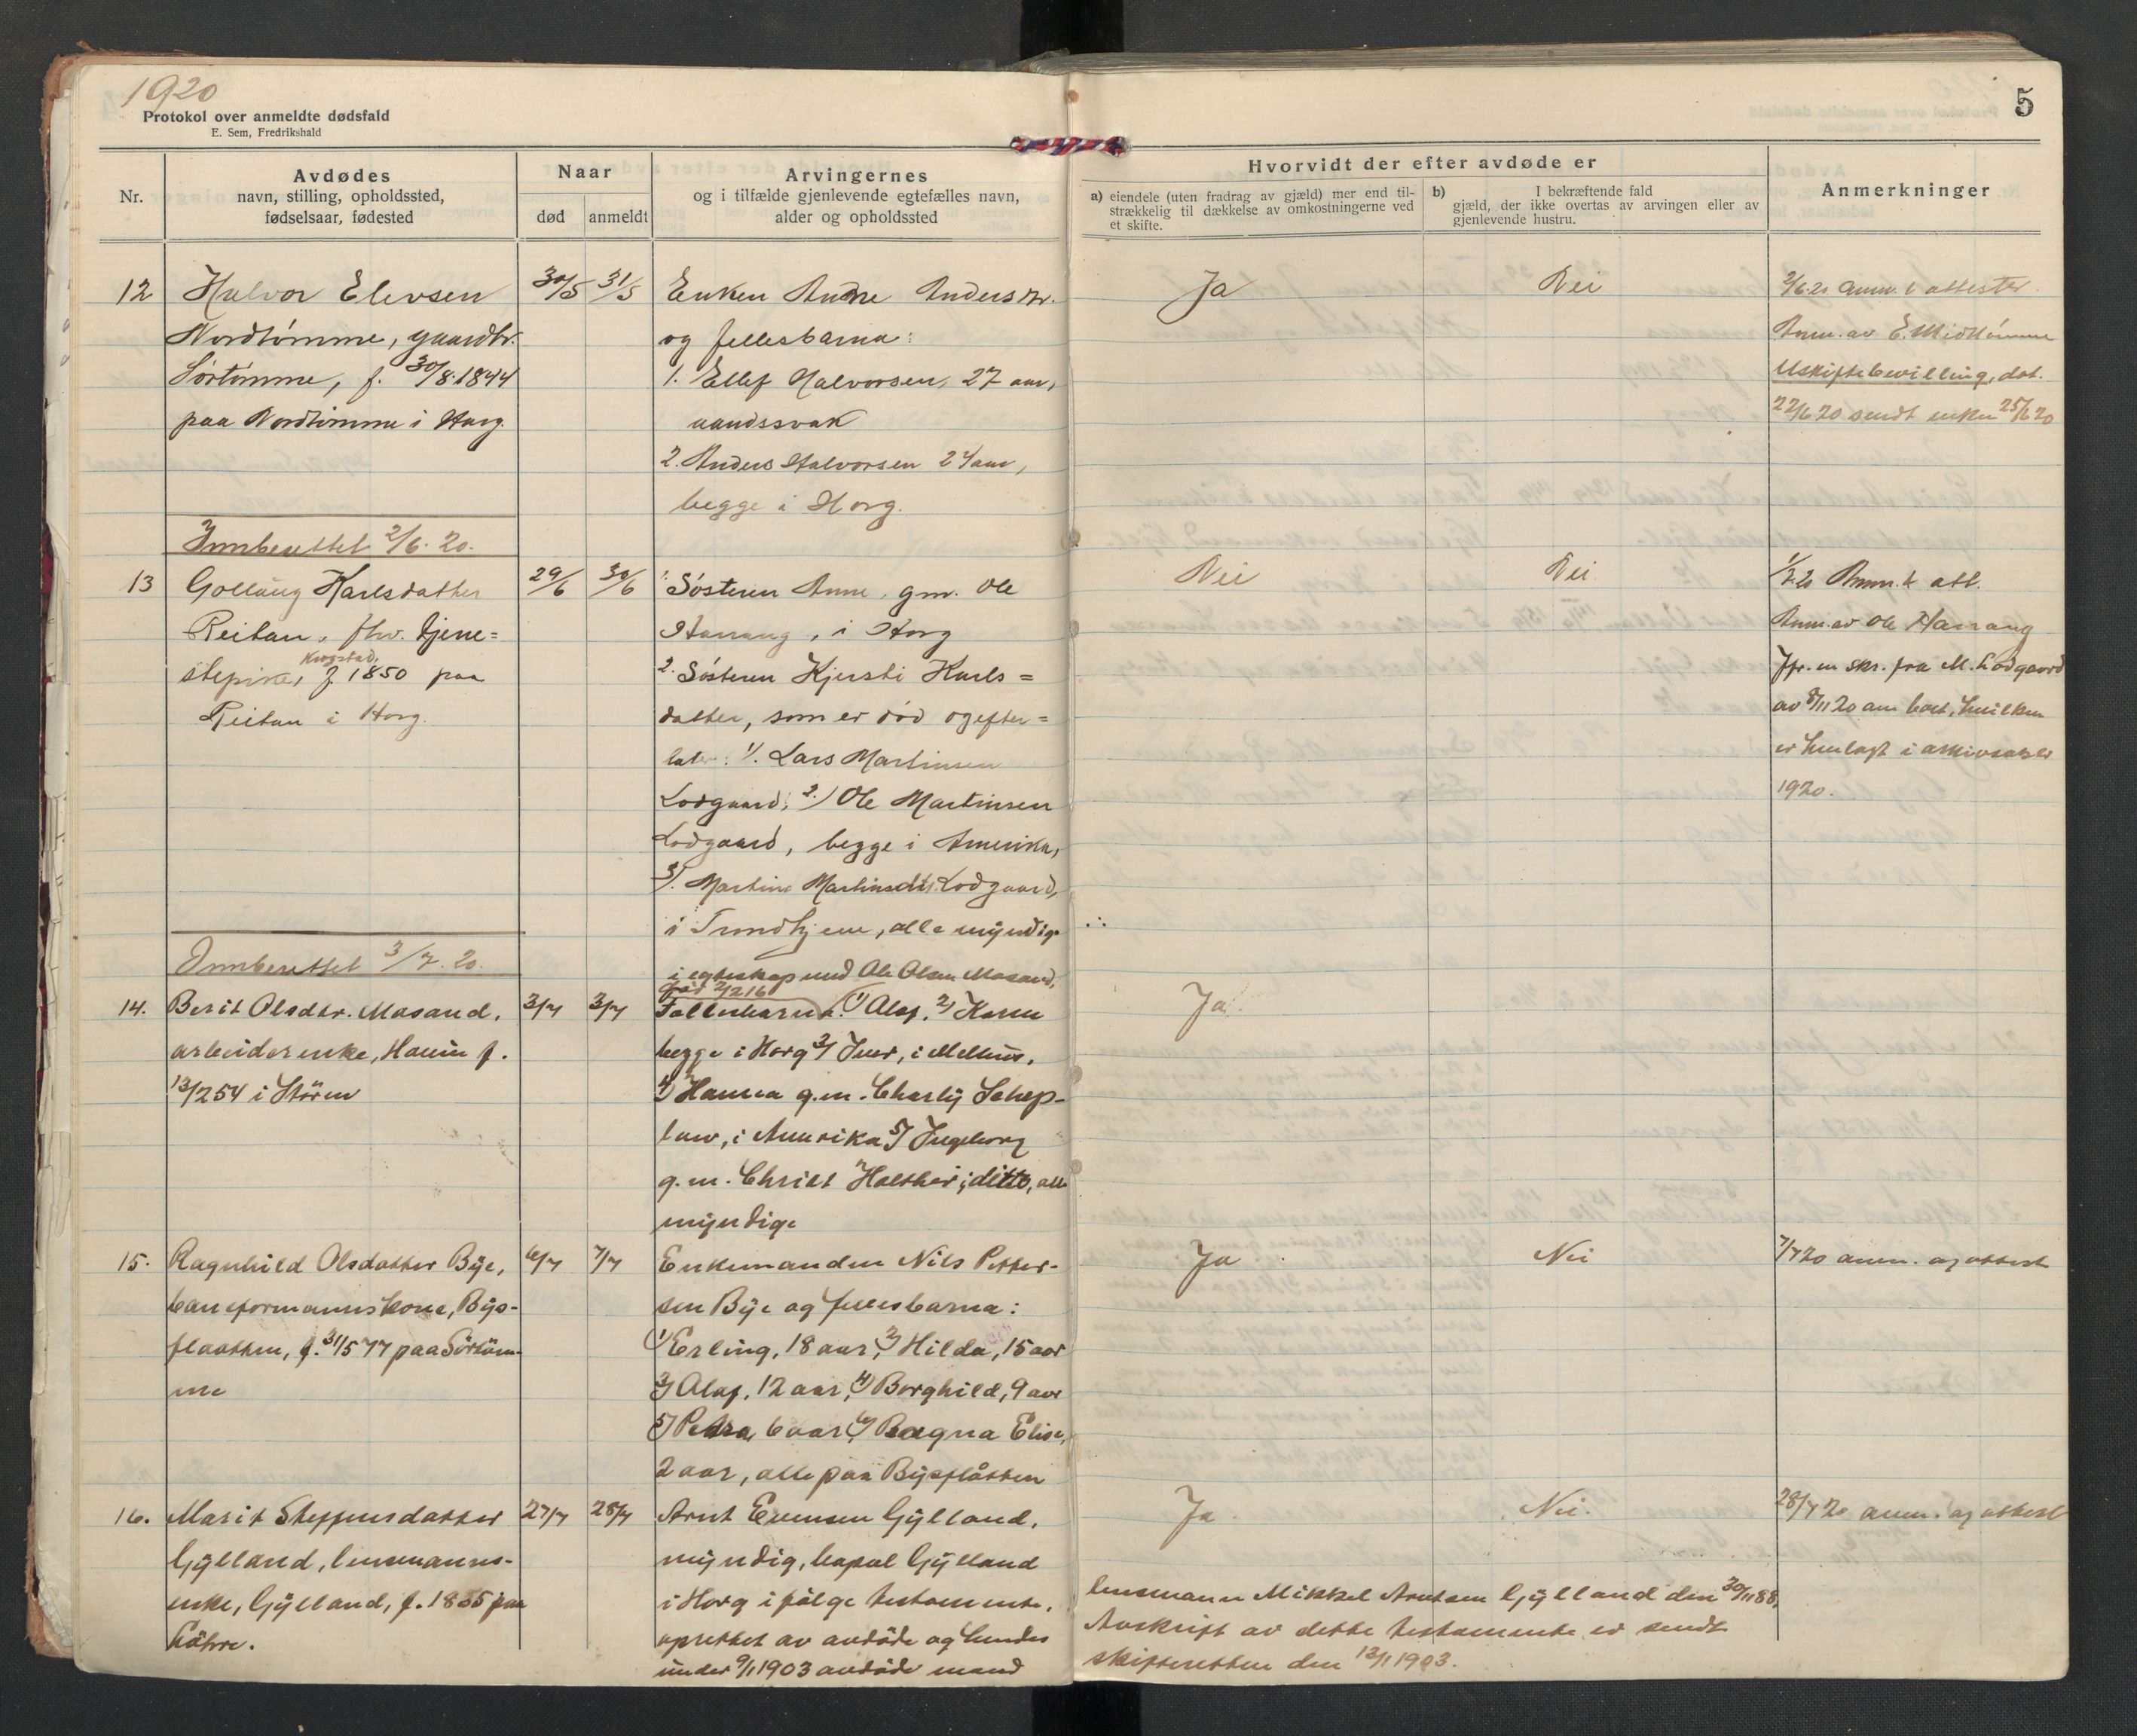 1920
Protokol over anmeldte dødsfald
E. Sem, Fredrikshald
5
Nr.
Avdødes
navn, stilling, opholdssted,
fødselsaar, fødested
Naar
død
anmeldt
Arvingernes
og i tilfælde gjenlevende egtefælles navn,
alder og opholdssted
Hvorvidt der efter avdøde er
a) eiendele (uten fradrag av gjæld) mer end til-
strækkelig til dækkelse av omkostningerne ved
et skifte.
b) I bekræftende fald
gjæld, der ikke overtas av arvingen eller av
gjenlevende hustru.
Anmerkninger
12
Halvor Elevsen
Nordtömme, gaardbr.
Sørtömme, f. 30/8.1844
paa Nordtömme i Horg.
30/5
31/5
Enken Anne Andersdr.
og fellesbarna:
1. Ellef Halvorsen, 27 aar,
aandssvak
2. Anders Halvorsen 24 aar,
begge i Horg.
Ja
Nei
2/6.20 anm. t attester
Anm. av E. Midttömme
Uskiftebevilling, dat.
22/6 20 sendt enken 25/6 20
Innberettet 2/6.20.
13
Gollaug Karlsdatter
Reitan, fhv. tjene=
stepike, Krogstad, f 1850 paa
Reitan i Horg.
29/6
30/6
1. Søsteren Anne, gm. Ole
Harrang, i Horg
2. Søsteren Kjersti Karls=
datter, som er død og efter=
later: 1/. Lars Martinsen
Lodgaard; 2.) Ole Martinsen
Lodgaard, begge i Amerika,
3/. Martine Martinsdtr. Lodgaard,
i Trondhjem, alle myndige
Nei
Nei.
Anm. t att.
Anm. av Ole Harrang
Jfr. en skr. fra M. Lodgaard
av 8/11 20 om boet, hvilken
er henlagt i arkivsaker
1920.
Innberettet 3/7.20.
14.
Berit Olsdtr. Mosand,
arbeiderenke, Hovin f.
13/2 54 i Stören
3/7
3/7
i egteskap med Ole Olsen Mosand,
død 2/2 16
Fellesbarna: 1) Olaf, 2) Karen
begge i Horg 3) Iver, i Melhus,
4) Hanna g.m. Charly Schep-
law, i Amerika 5) Ingeborg
g.m. Christ Holther; ditto, alle
myndige
Ja.
15.
Ragnhild Olsdatter Bye,
baneformannskone, Bys-
flaatten, f. 31/5 77 paa Sörtöm-
me
6/7
7/7
Enkemanden Nils Petter-
sen Bye og fellesbarna:
1) Erling, 18 aar, 2) Hilda, 15 aar
3) Olaf, 12 aar, 4) Borghild, 9 aar
5) Petra 6 aar, 6) Ragna Elise,
2 aar, alle paa Bysflåtten
Ja
Nei
7/7 20 anm. og attest
16.
Marit Steffensdatter
Gylland, lensmanns-
enke, Gylland, f. 1835 paa
27/7
28/7
Arnt Evensen Gylland,
myndig, bopæl Gylland
i Horg ifölge testamente,
oprettet av avdöde og hendes
under 9/1 1903 avdöde mand
Ja.
Nei.
28/7 20 anm. og attest
lensmann Mikkel Arntsen Gylland den 30/11 88.
Avskrift av dette testamente er sendt
skifteretten den 13/1 1903.